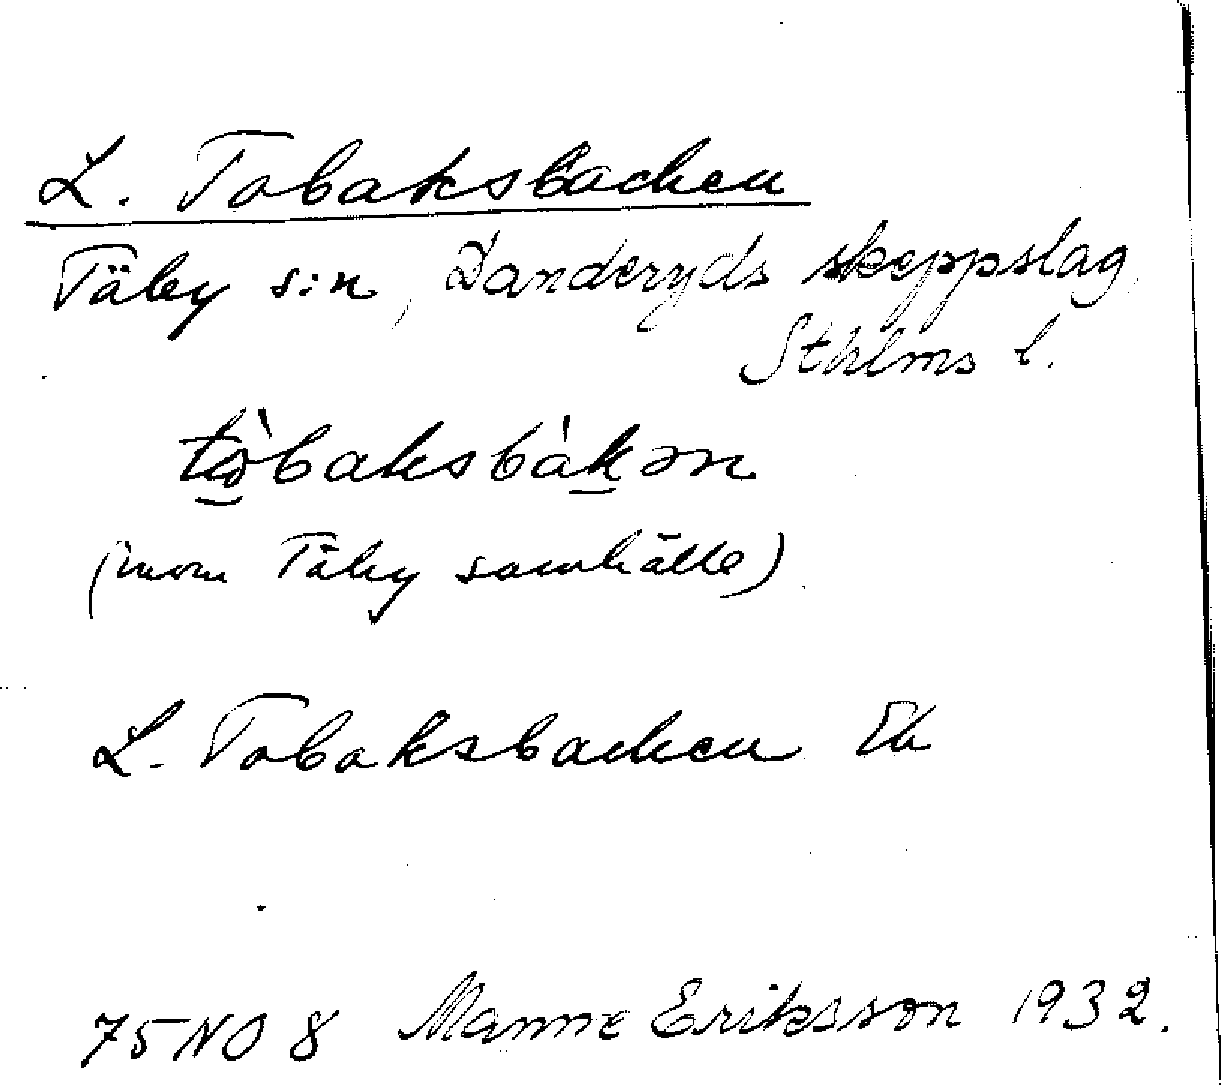 L. Tobaksbacken
Täby s:n, Danderyds skeppslag,
Sthlms l.
tòbaksbàkən
(inom Täby samhälle)
L. Tobaksbacken Ek
75 NO 8 Manne Eriksson 1932.